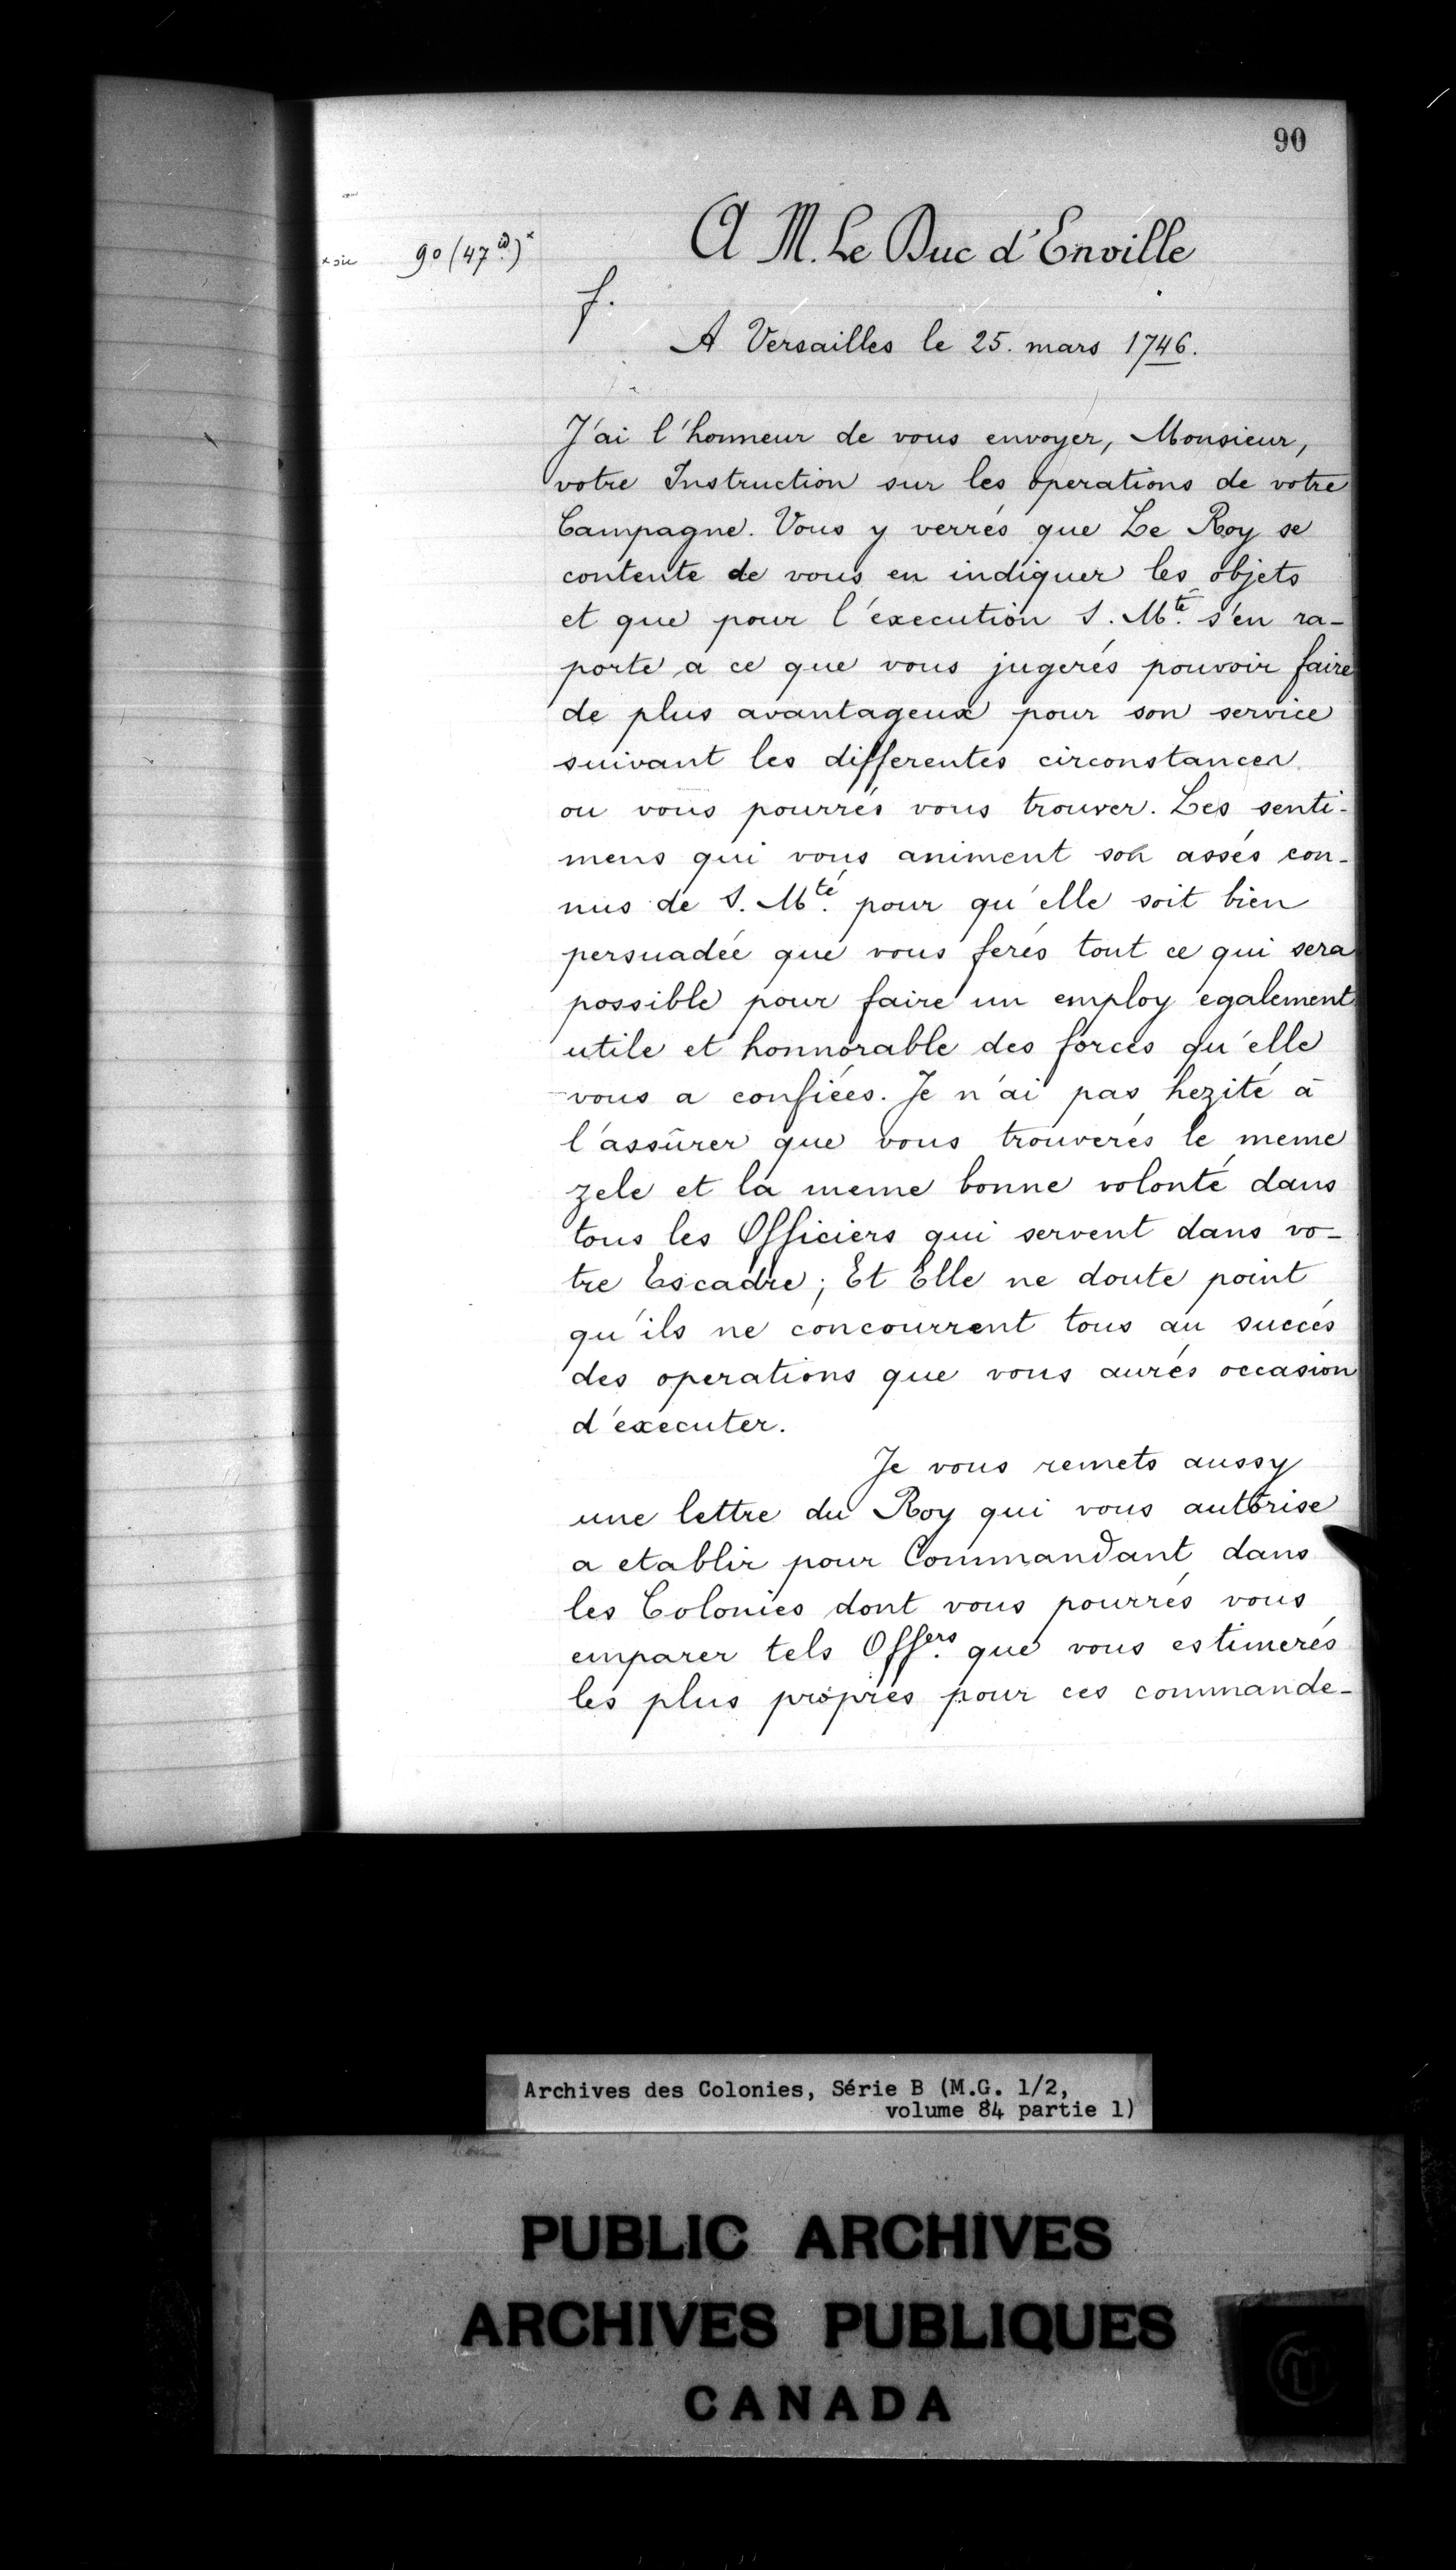 90
A M. Le Duc d'Enville
x sic 90 (47 id.) x
f.
A Versailles le 25. mars 1746.
J'ai l'honneur de vous envoyer, Monsieur,
votre Instruction sur les operations de votre
Campagne. Vous y verrés que Le Roy se
contente de vous en indiquer les objets
et que pour l'execution S. Mté. s'en ra-
porte a ce que vous jugerés pouvoir faire
de plus avantageux pour son service
suivant les differentes circonstances
ou vous pourrés vous trouver. Les senti-
mens qui vous animent son assés con-
nus de S. Mté. pour qu'elle soit bien
persuadée que vous ferés tout ce qui sera
possible pour faire un employ egalement
utile et honnorable des forces qu'elle
vous a confiées. Je n'ai pas hezité à
l'assûrer que vous trouverés le meme
zele et la meme bonne volonté dans
tous les Officiers qui servent dans vo-
tre Escadre; Et Elle ne doute point
qu'ils ne concourrent tous au succés
des operations que vous aurés occasion
d'executer.
Je vous remets aussy
une lettre du Roy qui vous autorise
a etablir pour Commandant dans
les Colonies dont vous pourrés vous
emparer tels Offers. que vous estimerés
les plus propres pour ces commande-
Archives des Colonies, Série B (M.G. 1/2,
volume 84 partie 1)
PUBLIC ARCHIVES
ARCHIVES PUBLIQUES
CANADA